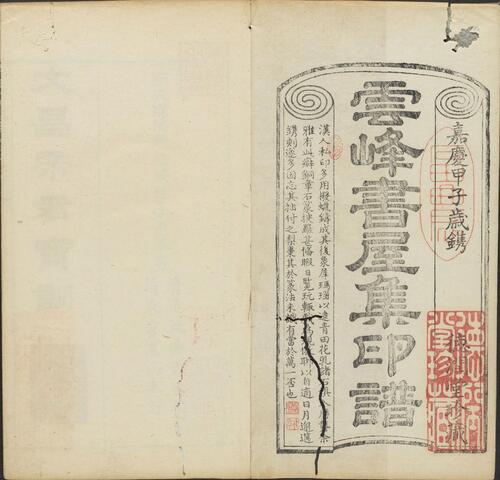 嘉慶甲子歲鐫
雲峰書屋集印譜
漢人私印多用撥蠟鑄成其後象犀瑪瑙以逮青田花乳諸石
雅有此癖銅章石篆搜羅甚備暇日覧玩輒以自適日月邈邁
鎸刻遂多因忘其拙付之梨棗其於篆法未有當於萬一否也
珍藏